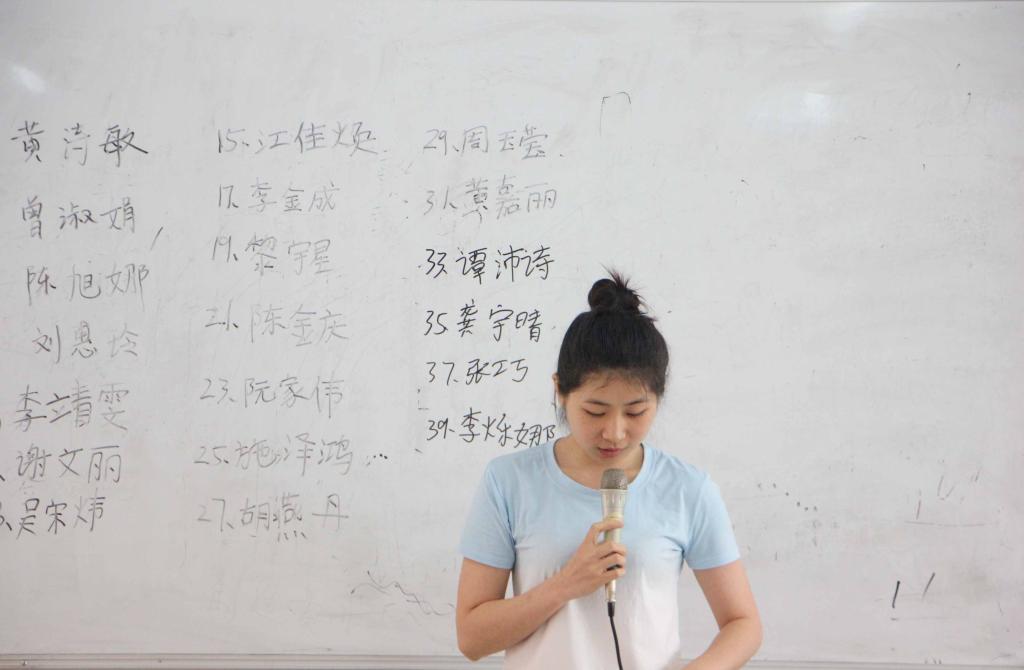 黄诗敏
曾淑娟
陈旭娜
刘恩玲
李靖雯
谢文丽
吴宋炜
15.江佳烦
17.李金成
19.黎宇星
21.陈金庆
23.阮家伟
25.施泽鸿...
27.胡燕丹
29.周玉莹.
31.黄嘉丽
33.谭沛诗
35.龚宇晴
37.张巧
39.李烁娜